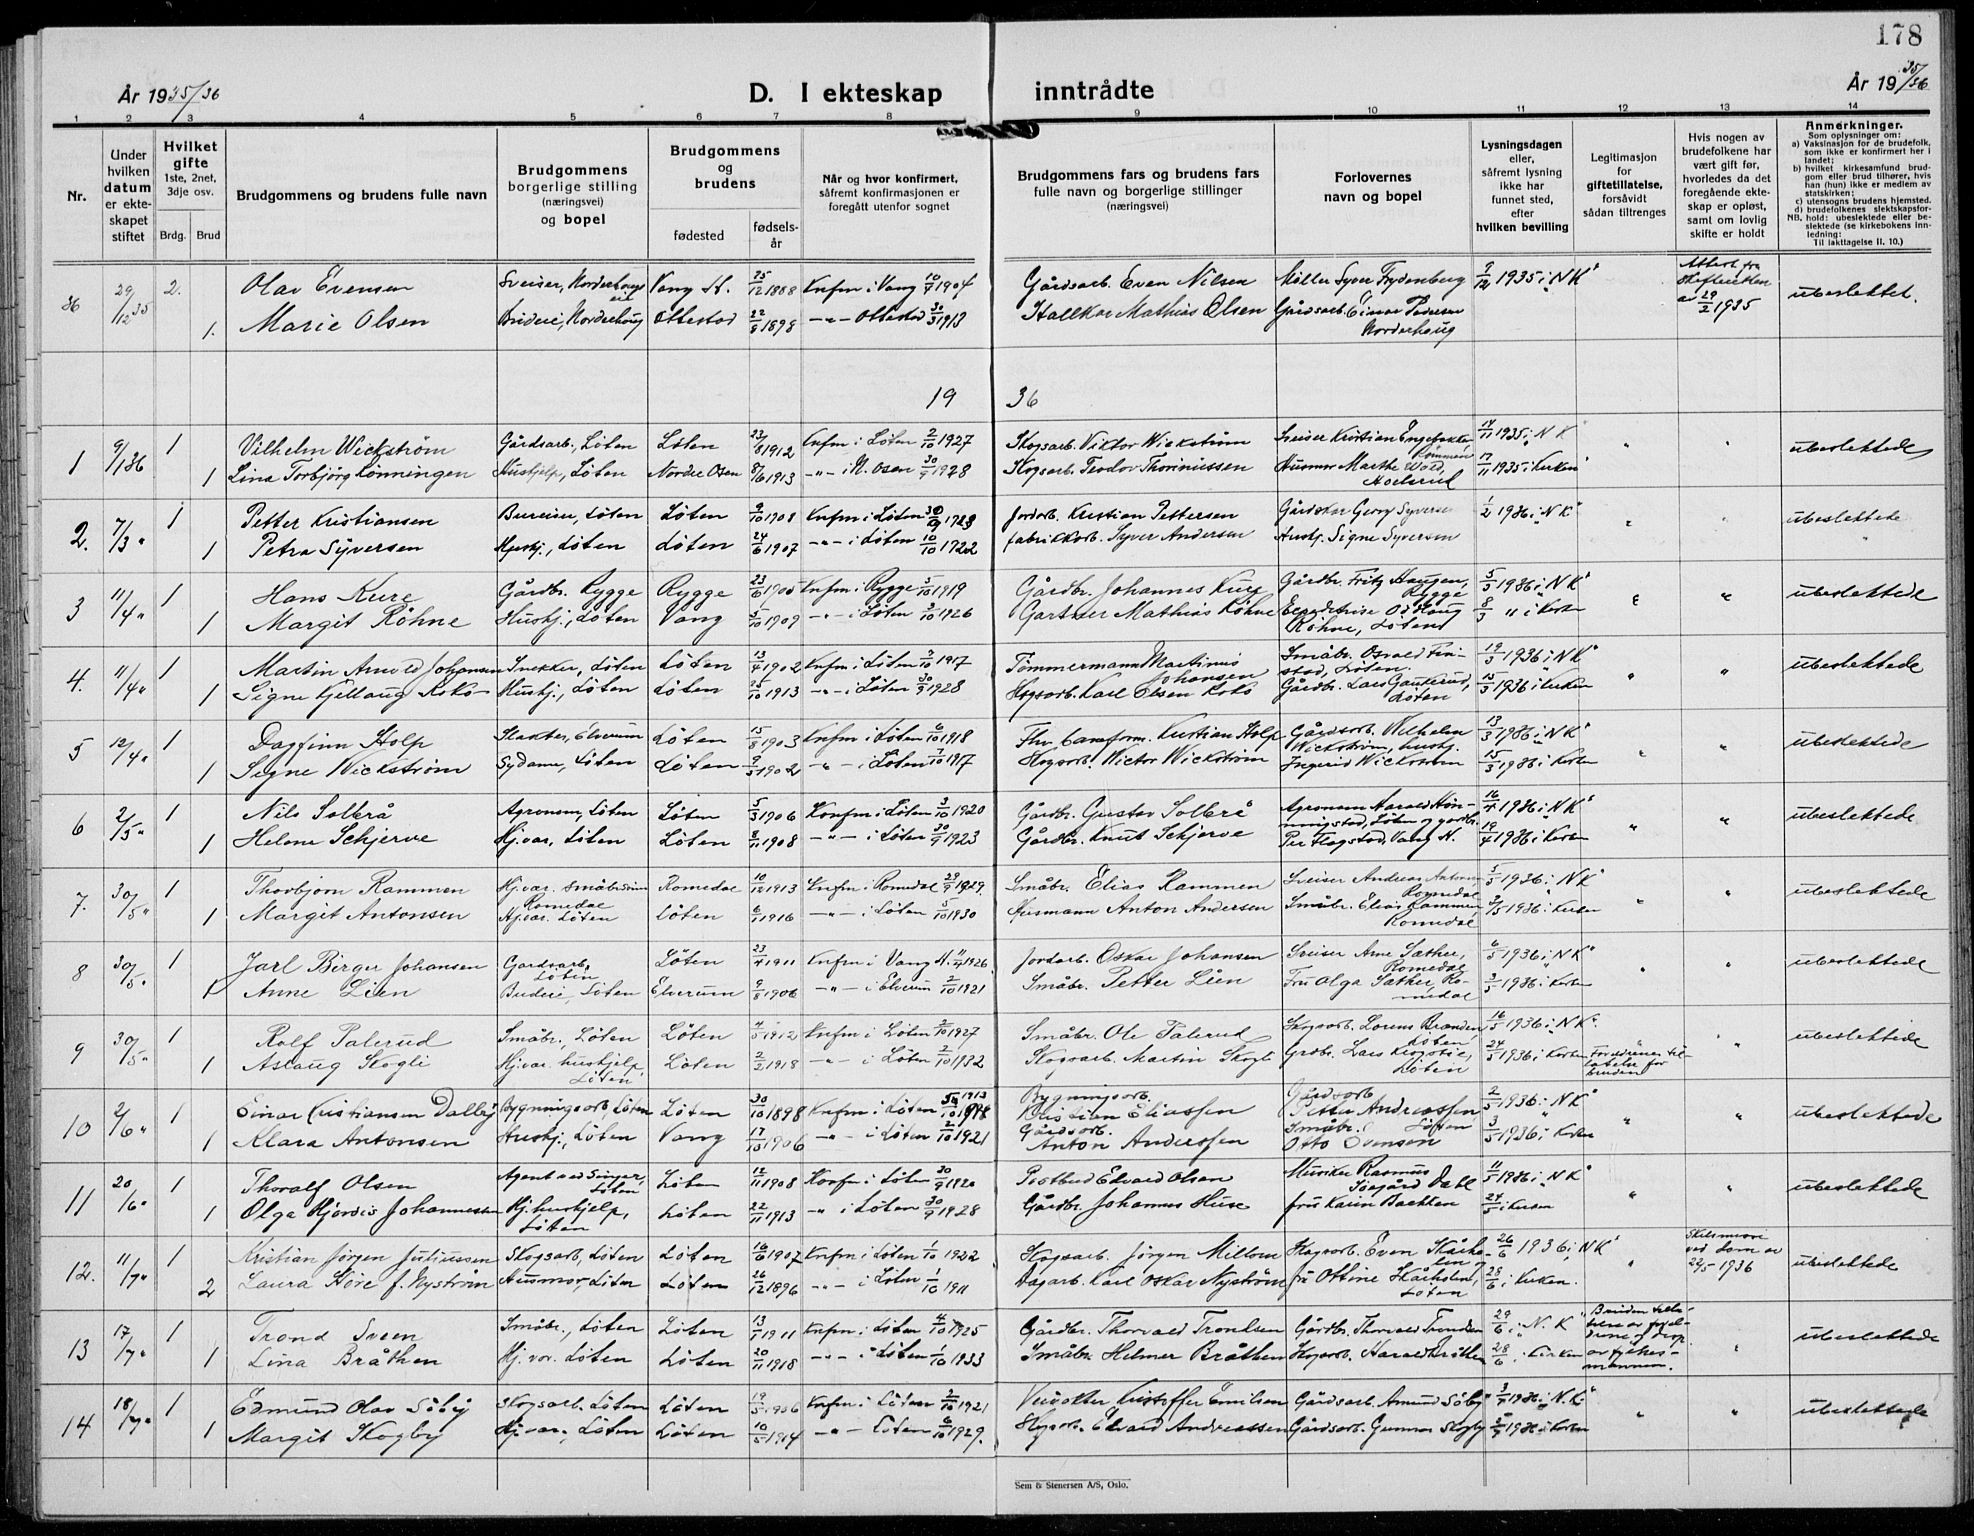 178
År 1935/36
D. I ekteskap inntrådte
År 1935/36
1 2 3 4 5 6 7 8 9 10 11 12 13 14
Nr.
Under hvilken datum er ekteskapet stiftet
Hvilket gifte 1ste, 2net, 3dje osv.
Brdg. Brud
Brudgommens og brudens fulle navn
Brudgommens borgerlige stilling (næringsvei) og bopel
Brudgommens og brudens
fødested
fødselsår
Når og hvor konfirmert, såfremt konfirmasjonen er foregått utenfor sognet
Brudgommens fars og brudens fars fulle navn og borgerlige stillinger (næringsvei)
Forlovernes navn og bopel
Lysningsdagen eller, såfremt lysning ikke har funnet sted, efter hvilken bevilling
Legitimasjon for giftetillatelse, forsåvidt sådan tiltrenges
Hvis nogen av brudefolkene har vært gift før, hvorledes da det foregående ekteskap er opløst, samt om lovlig skifte er holdt
Anmerkninger.
Som oplysninger om:
a) Vaksinasjon for de brudefolk, som ikke er konfirmert her i landet;
b) hvilket kirkesamfund brudgom eller brud tilhører, hvis han (hun) ikke er medlem av statskirken;
c) utensogns brudens hjemsted.
d) brudefolkenes slektskapsforhold: ubeslektede eller beslektede (se kirkebokens innledning:
NB.
Til iakttagelse II. 10.)
36 29/12 35 2. Olav Evensen Sveiser, Norderhougseie Vang H. 25/12 1888 Knfm i Vang 10/7 1904 Gårdsarb. Even Nilsen Møller Syver Frydenberg 9/12 1935 i "NK" Attest fra Skifteretten av 29/2 1935 ubeslektet.
1. Marie Olsen Budeie, Norderhoug Ottestad 22/8 1898 -"- Ottestad 30/3 1913 Stallkar Mathias Olsen Gårdsarb. Einar Pedersen Norderhoug
1936
1 9/1 36 1 Vilhelm Wickstrøm Gårdsarb., Løten Løten 23/8 1912 Knfm i Løten 2/10 1927 Skogsarb. Viktor Wickstrøm Sveiser Kristian 14/11 1935 i "NK" " " ubeslektede
1 Lina Torbjørg Rønningen Hushjelp, Løten Nordre Osen 8/6 1913 -"- i N. Osen 30/9 1928 Skogsarb. Teodor Husmor Marthe Wold, 17/11 1935 i Kirken
2. 7/3 " 1 Petter Kristiansen Bureiser, Løten Løten 9/10 1908 Knfm i Løten 1923 Jordarb. Kristian Pettersen Gårdsarb Georg Syversen 1/2 1936 i "NK" " " ubeslektede
1 Petra Syversen Hushj., Løten Løten 24/6 1907 -"- i Løten 10/10 1922 fabrikkarb. Syver Andersen Hushj. Signe Syversen
3 11/4 " 1 Hans Kure Gårdbr. Rygge Rygge 23/6 1905 Knfm i Rygge 5/10 1919 Gårdbr. Johannes Kure Gårdbr. Fritz Haugen, Rygge 5/3 1936 i "NK" " " ubeslektede
1 Margit Röhne Hushj., Løten Vang 5/10 1909 -"- i Løten 3/10 1926 Gartner Mathias Röhne Ekspeditrise Oddlaug Röhne, Løten 8/3 " i Kirken
4. 11/4 " 1 Martin Arnold Johansen Snekker, Løten Løten 13/4 1902 Knfm i Løten 7/10 1917 Tømmermann Martinus Johansen Småbr. Osvald Finstad, Løten. 12/3 1936 i "NK" " " ubeslektede
1 Signe Gjellaug Koksø Hushj., Løten Løten 25/10 1913 -"- i Løten 30/9 1928 Skogsarb. Karl Olsen Gårdbr. Lars Gaukerud, Løten 15/3 1936 i Kirken
5 12/4 " 1 Dagfinn Holp Slakter, Elverum Løten 15/8 1903 Knfm i Løten 6/10 1918 Fhv. baneform. Kristian Holp Gårdsarb. Wilhelm Wickstrøm, hushj. 13/3 1936 i "NK" " " ubeslektede
1 Signe Wickstrøm Sydame, Løten Løten 9/3 1902 -"- i Løten 7/10 1917 Skogsarb. Victor Wickstrøm Ingerid Wickstrøm 15/3 1936 i Kirken
6 2/5 " 1 Nils Solberg Agronom, Løten Løten 5/3 1906 Konfm i Løten 3/10 1920 Gårdbr. Gustav Solberg Agronom Harald Hørmningstad, Løten og gårdbr. 16/4 1936 i "NK" " " ubeslektede
1 Helene Schjerve Hj.vær., Løten Løten 8/11 1908 -"- i Løten 30/9 1923 Gårdbr. Knut Schjerve Per Flagstad, Vang H. 19/4 1936 i Kirken
7. 30/5 " 1 Thorbjørn Rammen Hj.vær. småbruker Romedal Romedal 10/12 1913 Knfm i Romedal 29/9 1929 Småbr. Elias Rammen Sveiser Andreas Antonsen Romedal 5/5 1936 i NK " " ubeslektede
1 Margit Antonsen Hj.vær. Løten Løten 6/1 1916 -"- i Løten 5/10 1930 Husmann Anton Andersen Småbr. Elias Rammen, Romedal 3/5 1936 i Kirken
8 30/5 " 1 Jarl Birger Johansen Gardsarb, Løten Løten 23/4 1911 Knfm i Vang H. 11/4 1926 Jordarb. Oskar Johansen Sveiser Arne Sæther, Romedal 6/5 1936 i "NK" " " ubeslektede
1 Anne Lien Budeie, Løten Elverum 9/8 1906 -"- i Elverum 2/10 1921 Småbr. Petter Lien Fru Olga Sæther, Romedal 3/5 1936 i Kirken
9 30/5 " 1 Rolf Palerud Småbr., Løten Løten 4/5 1912 Knfm i Løten 2/10 1927 Småbr. Ole Palerud Skogsarb. Lorens Brenden, Løten, 16/5 1936 i NK " " ubeslektede
1 Aslaug Skogli Hj.vær. hushjelp, Løten Løten 2/2 1918 -"- i Løten 2/10 1932 Skogsarb. Martin Skogli Grdbr. Lars Løten 24/5 1936 i Kirken Foreldrenes tillatelse for bruden
10 2/6 " 1 Einar Kristiansen Dalby Bygningsarb, Løten Løten 30/10 1898 Knfm i Løten 1913 Bygningsarb. Kristian Eliassen Gårdsarb Petter Andreassen 2/5 1936 i NK " " ubeslektede
1 Klara Antonsen Hushj., Løten Vang 17/3 1906 -"- i Løten 2/10 1921 Gårdsarb. Anton Anderssen Småbr. Løten Otto Evensen 3/5 1936 i Kirken
11 20/6 " 1 Thoralf Olsen Agent ved Singer, Løten Løten 12/11 1908 Konfm i Løten 30/9 1920 Postbud Edvard Olsen Musiker Rasmus Dahl 11/5 1936 i NK " " ubeslektede
1 Olga Hjørdis Johannessen Hj. hushjelp, Løten Løten 22/11 1913 -"- i Løten 30/9 1928 Gårdbr. Johannes Huse frue Karin Bakken 24/5 i Kirken
12. 11/7 " 1 Kristian Jørgen Juliussen Skogsarb, Løten Løten 16/6 1907 Knfm i Løten 1/10 1922 Skogsarb. Jørgen Millom Skogsarb. Even Skårholen og 26/6 1936 i "NK" " Skilsmisse ved dom av 29/5 1936 ubeslektede
2 Laura Støre f. Nystrøm Husmor, Løten Løten 26/12 1896 -"- i Løten 1/10 1911 Dagarb. Karl Oskar Nystrøm fru Ottine Skårholen, Løten 28/6 i Kirken.
13 17/7 " 1 Trond Sveen Småbr., Løten Løten 13/1 1911 Knfm i Løten 4/10 1925 Gårdbr. Thorvald Trondsen Gårdbr. Thorvald Trondsen 29/6 i "N.K" " ubeslektede
1 Lina Bråthen Hj. vær. Løten Løten 20/11 1918 -"- i Løten 1/10 1933 Småbr. Helmer Bråthen Skogsarb. Harald Bråthen 28/6 i Kirken
14 18/7 " 1 Edmund Olav Söby Skogsarb. Løten Løten 19/5 1906 Knfm i Løten 2/10 1921 Veivokter Kristoffer Emilsen Gårdsarb. Amund Söby 3/7 1936 i "N.K" " " ubeslektede
1 Margit Skogby Hj.vær., Løten Løten 10/5 1914 -"- Løten 6/10 1929. Skogsarb. Edvard Andreassen Gårdsarb. Gunnar Skogby 5/7 1936 i Kirken
Sem & Stenersen A/S, Oslo.